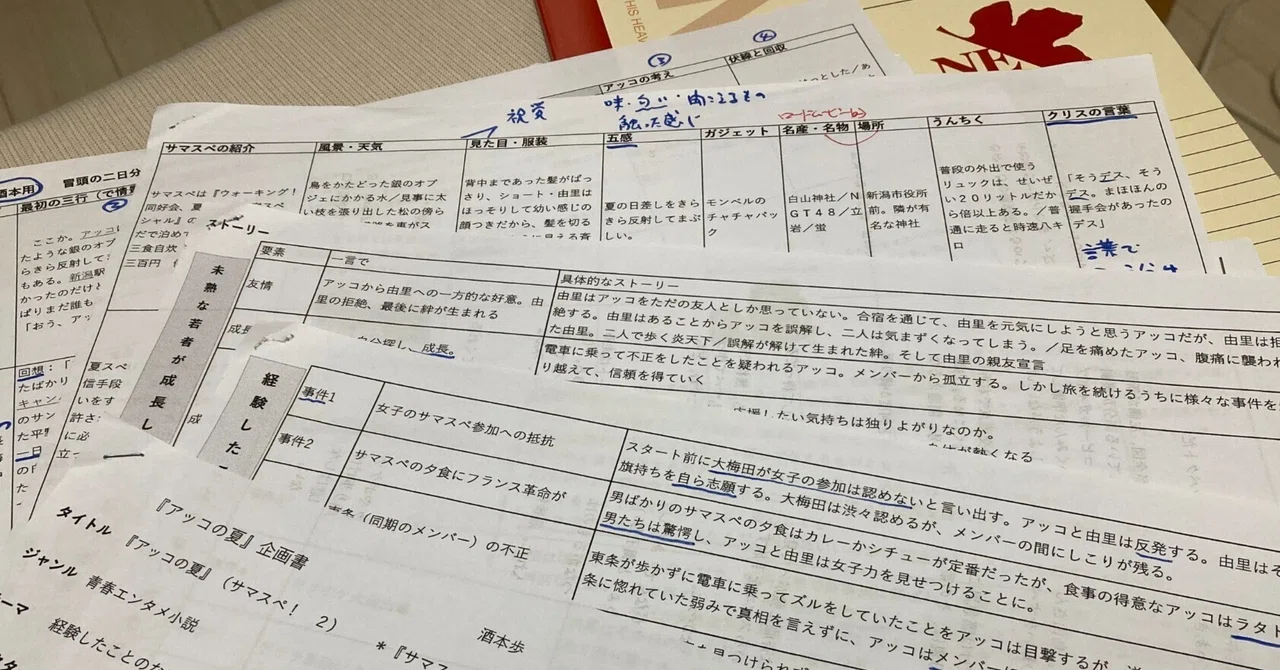 THIS HEAV
NE
③
④
アッコの考え
伏線と回収
視覚
味・匂い・聞こえるもの
触った感じ
ロードムービー的
サマスペの紹介
風景・天気
見た目・服装
五感
ガジェット
名産・名物
場所
うんちく
クリスの言葉
サマスペは『ウォーキング！
同好会、夏
シャル』の
三食自炊
三百円
鳥をかたどった銀のオブ
ジェにかかる水／見事に太
い枝を張り出した松の傍ら
背中まであった髪がばっ
さり、ショート・由里は
ほっそりして幼い感じの
顔つきだから、髪を切る
夏の日差しをきら
きら反射してまぶ
しい。
モンベルの
チャチャパッ
ク
白山神社／N
GT48／立
岩／蛍
新潟市役所
前。隣が有
名な神社
普段の外出で使う
リュックは、せいぜ
い２０リットルだか
ら倍以上ある。／普
通に走ると時速八キ
ロ
「そうデス、そう
デス。まほほんの
握手会があったの
デス」
酒本用
冒頭の二日分
最初の三行
②
ここか。アッコ
たような銀のオブ
らきら反射して
もある。新潟駅
かったのだけ
ぱりまだ誰も
「おう、アッ
回想：「
たばかり
キャン
のサン
た平
一日
夏スペ
信手段
いをす
許さ
に必
立っ
ストーリー
未熟な若者が成長し
要素
一言で
具体的なストーリー
友情
アッコから由里への一方的な好意。由
里の拒絶、最後に絆が生まれる
由里はアッコをただの友人としか思っていない。合宿を通じて、由里を元気にしようと思うアッコだが、由里は拒
絶する。由里はあることからアッコを誤解し、二人は気まずくなってしまう。／足を痛めたアッコ、腹痛に襲われ
た由里。二人で歩く炎天下／誤解が解けて生まれた絆。そして由里の親友宣言
成長
成長。
電車に乗って不正をしたことを疑われるアッコ。メンバーから孤立する。しかし旅を続けるうちに様々な事件を
り越えて、信頼を得ていく
応援したい気持ちは独りよがりなのか。
が熱くなる
経験した
事件1
女子のサマスペ参加への抵抗
スタート前に大梅田が女子の参加は認めないと言い出す。アッコと由里は反発する。由里はそ
旗持ちを自ら志願する。大梅田は渋々認めるが、メンバーの間にしこりが残る。
事件2
サマスペの夕食にフランス革命が
男ばかりのサマスペの夕食はカレーかシチューが定番だったが、食事の得意なアッコはラタト
男たちは驚愕し、アッコと由里は女子力を見せつけることに。
（同期のメンバー）の不正
東条が歩かずに電車に乗ってズルをしていたことをアッコは目撃するが、
条に惚れていた弱みで真相を言えずに、アッコはメンバー
『アッコの夏』企画書
タイトル　『アッコの夏』（サマスペ！　２）
酒本歩
ジャンル　青春エンタメ小説
＊『サマス
経験したことのな